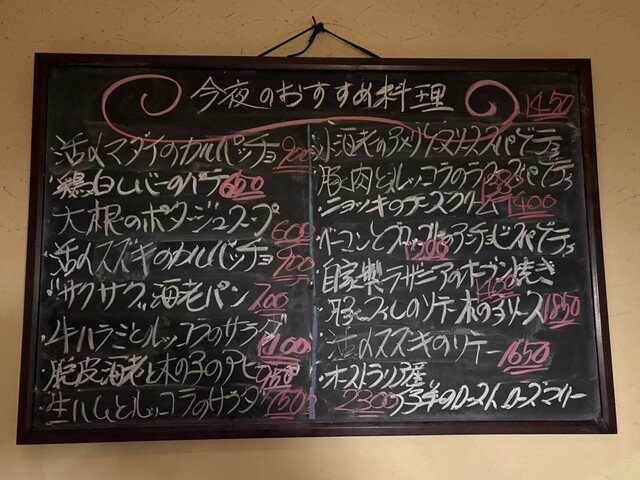 今夜のおすすめ料理
活〆マダイのカルパッチョ 900
鶏白レバーのパテ 600
大根のポタージュスープ 600
活〆スズキのカルパッチョ 900
サクサク海老パン 700
牛ハラミとルッコラのサラダ 1100
脱皮海老と木の子のアヒ 950
生ハムとルッコラのサラダ
小海老のアメリケーヌソーススパゲティ 1450
豚肉とルッコラのラグースパゲティ
ニョッキのチーズクリーム 1400
ベーコンとブロッコリーのアンチョビスパゲティ
自家製ラザニアのオーブン焼き
豚ヒレのソテー木の子ソース 1850
活〆スズキのソテー 1650
オーストラリア産
2300 子羊のロースト ローズマリー